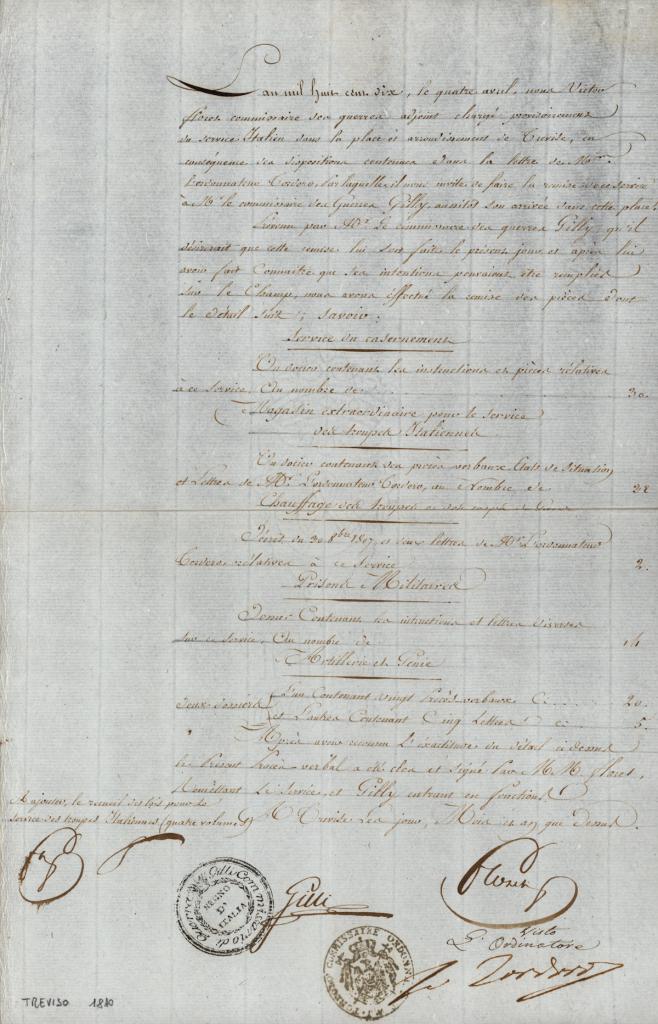 L'an mil huit cent dix, le quatre avril, nous Victor
Floret commissaire des guerres adjoint chargé provisoirement
du service Italien dans la place et arrondissement de Trevise, en
conséquence des dispositions contenues dans la lettre de Mr.
L'ordonnateur Cordero, par laquelle il nous invite de faire la remise de ce service
à Mr. le commissaire des Guerres Gilly, aussitôt son arrivée dans cette place.
Prévenu par Mr. Le commissaire des guerres Gilly, qu'il
désirerait que cette remise lui soit faite le présent jour et après lui
avoir fait Connaitre que ses intentions pouvaient être remplies
sur le Champ, nous avons éffectué la remise des pièces dont
le détail suit; savoir:
Service du casernement
Un dossier contenant les instructions et pièces rélatives
à ce service, Au nombre de 30.
Magasin extraordinaire pour le service
des troupes Italiennes
Un dossier contenant des procès verbaux, Etats de Situation,
et Lettres de Mr. L'ordonnateur Cordero, au Nombre de 38
Chauffage des troupes et des corps de Garde
Décret du 30 8bre 1807, et deux lettres de Mr. L'ordonnateur
Cordero, rélatives à ce Service 2.
Prisons Militaires
Dossier Contenant des intructions et lettres diverses
sur ce service, Au nombre de 14
Artillerie et Génie
deux dossiers
L'un Contenant vingt Procès verbaux Ci 20.
et L'autre Contenant Cinq Lettres ci 5.
Après avoir reconnu L'éxactitude du détail ci dessus
le Présent Procès-verbal a été clos et signé par M.M. Floret,
Remêttant le Service, et Gilly entrant en fonctions
A Trevise Les jour, Mois et an que dessus.
A ajouter, le recueil des lois pour le
service des troupes Italiennes (quatre volumes)
Gilli Commissario di Guerra
REGNO
D'
ITALIA
Gilli
Floret
Visto
L'Ordinatore
Cordero
COMMISSAIRE ORDONNAT
TREVISO 1810